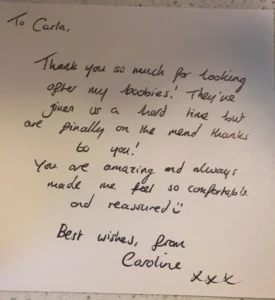 To Carla,
Thank you so much for looking
after my boobies! They've
given us a hard time but
are finally on the mend thanks
to you!
You are amazing and always
made me feel so comfortable
and reassured :)
Best wishes, from
Caroline
xxx